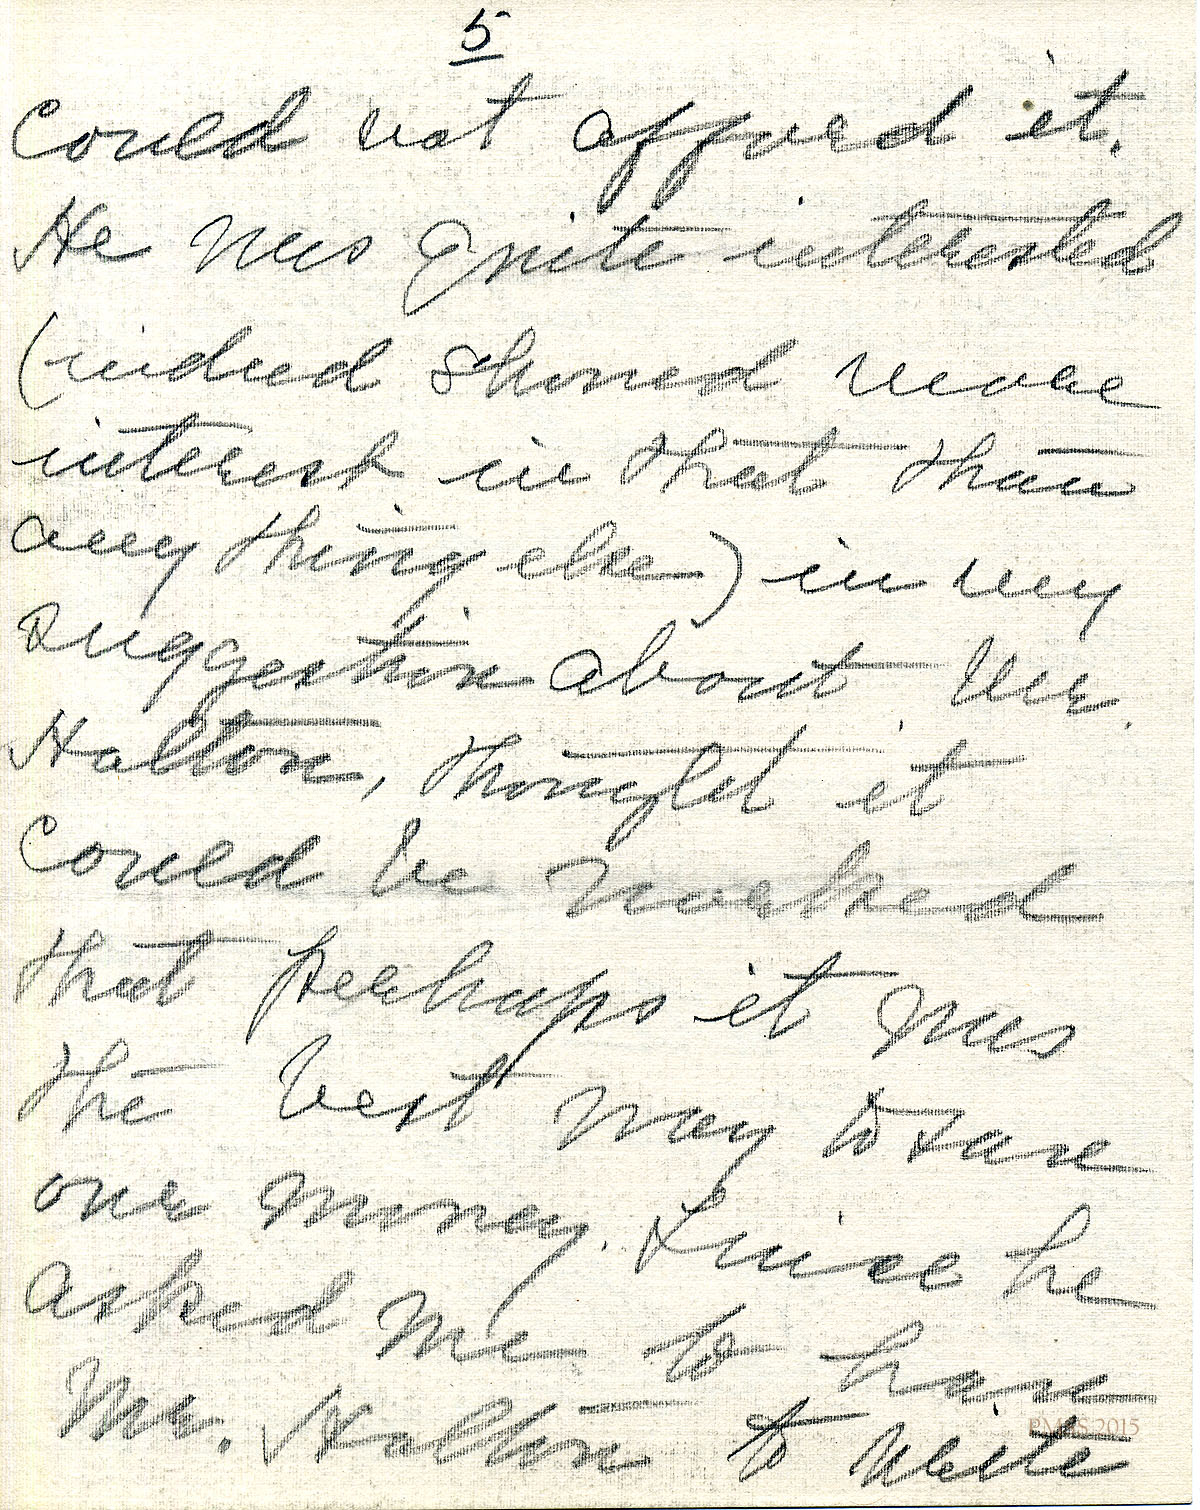 5
could not afford it.
He was quite interested
(indeed showed more
interest in that than
any thing else) in my
suggestion about Mr.
Halton, thought it
could be worked
that perhaps it was
the best way to save
our money. Twice he
asked me to have
Mr. Halton to write
PMHS 2015